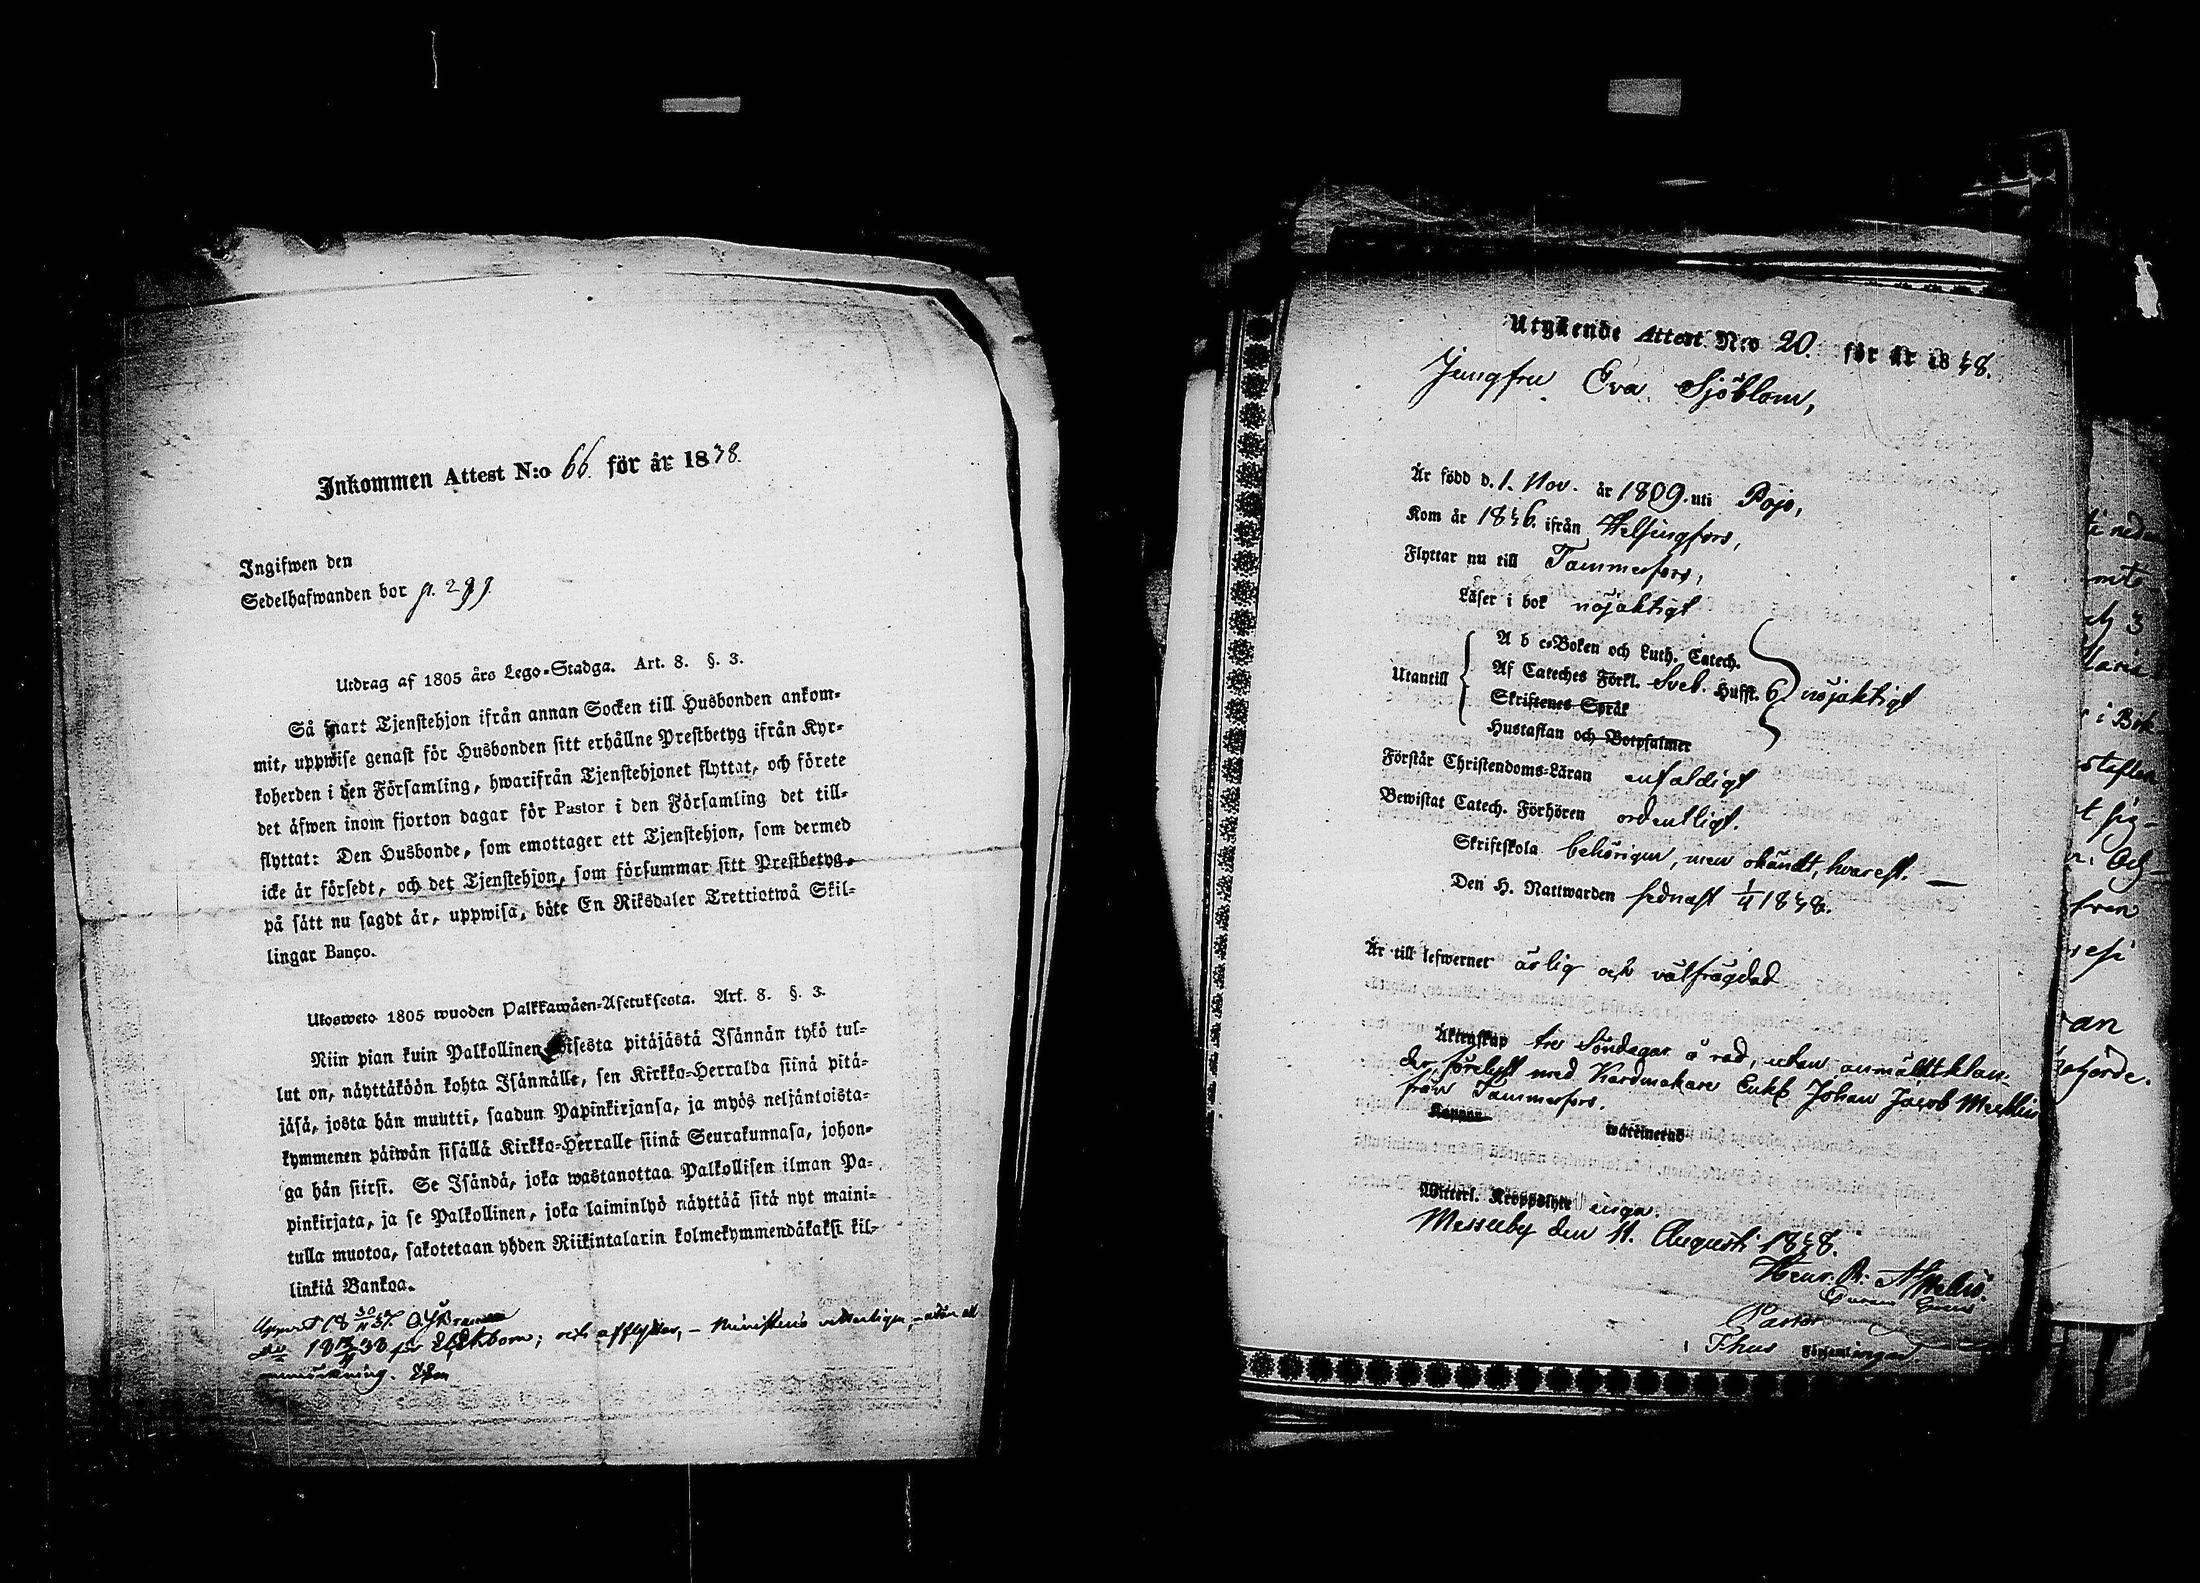 Inkommen Attest N:o 66. för år 1838.
Ingifwen den
Sedelhafwanden bor p. 299.
Utdrag af 1805 års Lego-Stadga. Art. 8. §. 3.
Så snart Tjenstehjon ifrån annan Socken till Husbonden ankom-
mit, uppwise genast för Husbonden sitt erhållne Prestbetyg ifrån Kyr-
koherden i den Församling, hwarifrån Tjenstehjonet flyttat, och förete
det äfwen inom fjorton dagar för Pastor i den Församling det till-
flyttat: Den Husbonde, som emottager ett Tjenstehjon, som dermed
icke är försedt, och det Tjenstehjon, som försummar sitt Prestbetyg,
på sätt nu sagdt är, uppwisa, böte En Riksdaler Trettiotwå Skil-
lingar Banco.
Ulosweto 1805 wuoden Palkkawäen-Asetuksesta. Art. 8. §. 3.
Niin pian kuin Palkollinen toisesta pitäjästä Isännän tykö tul-
lut on, näyttäköön kohta Isännälle, sen Kirkko-Herralda siinä pitä-
jäsä, josta hän muutti, saadun Papinkirjansa, ja myös neljäntoista-
kymmenen päiwän sisällä Kirkko-Herralle siinä Seurakunnasa, johon-
ga hän siirsi. Se Isändä, joka wastanottaa Palkollisen ilman Pa-
pinkirjata, ja se Palkollinen, joka laiminlyö näyttää sitä nyt maini-
tulla muotoa, sakotetaan yhden Riikintalarin kolmekymmendäkaksi kil-
linkiä Bankoa.
för Ekbom; och afflyttar, utan all
anmärkning.
Utgående Attest N:o 20. för år 1848.
Jungfru Eva Sjöblom,
Är född d. 1. Nov. år 1809. uti Pojo,
Kom år 1846. ifrån Helsingfors,
Flyttar nu till Tammerfors,
Läser i bok nöjaktigt
Utantill
A b c-Boken och Luth. Catech.
Af Cateches Förkl. Sveb. Hufst. 6 nöjaktigt
Skriftenes Språk
Hustaflan och Botpsalmer
Förstår Christendoms-Läran enfaldigt
Bewistat Catech. Förhören ordentligt.
Skriftskola behörigen, men okändt, hvarest.
Den H. Nattwarden sednast 1/4 1848.
Är till lefwernet ärlig och välfrägdad
Äktenskap tre Söndagar å rad, utan anmäldt klan-
der, förelyst med Kardmakare Enkl. Johan Jacob
från Tammerfors.
Koppor waccinerad
Witterl. Kroppslyte inga.
Messuby den 11. Augusti 1848.
Henr. R.
Pastor
i Thus Församlingar.